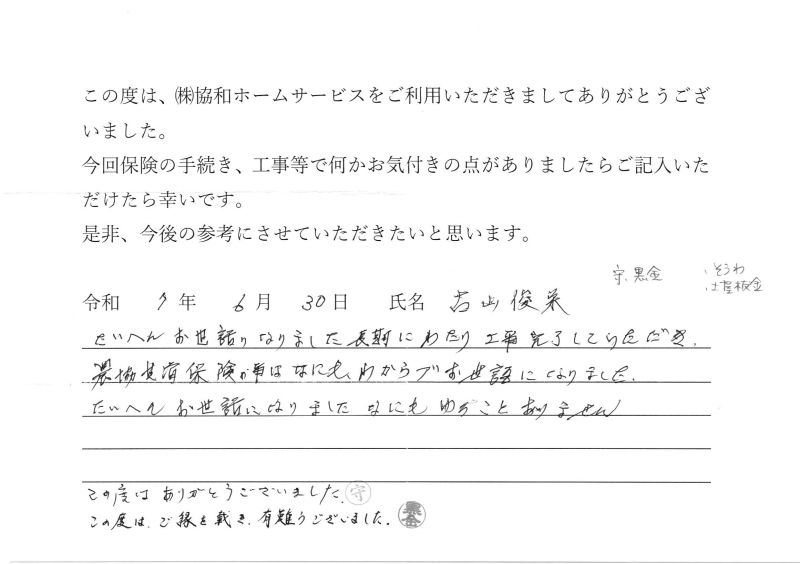 この度は、㈱協和ホームサービスをご利用いただきましてありがとうござ
いました。
今回保険の手続き、工事等で何かお気付きの点がありましたらご記入いた
だけたら幸いです。
是非、今後の参考にさせていただきたいと思います。
守、黒金
・そうわ
・土屋板金
令和 7年 6月 30日 氏名 古山俊栄
たいへんお世話りなりました長期にわたり工事完了していただき、
農協共済保険の事はなにもわからづお世話になりました。
たいへんお世話になりましたなにもゆうことありません
この度はありがとうございました。守
この度は、ご縁を戴き、有難うございました。黒金